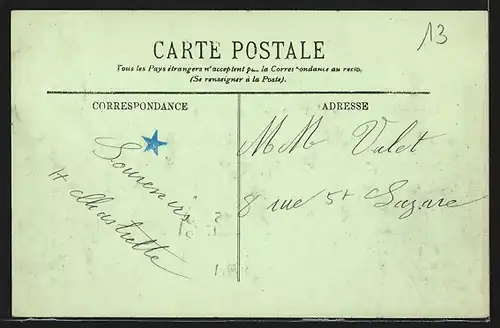 13
CARTE POSTALE
Tous les Pays étrangers n'acceptent pas la Correspondance au recto.
(Se renseigner à la Poste).
CORRESPONDANCE
ADRESSE
Souvenirs
H
MM Valet
8 rue St Lazare